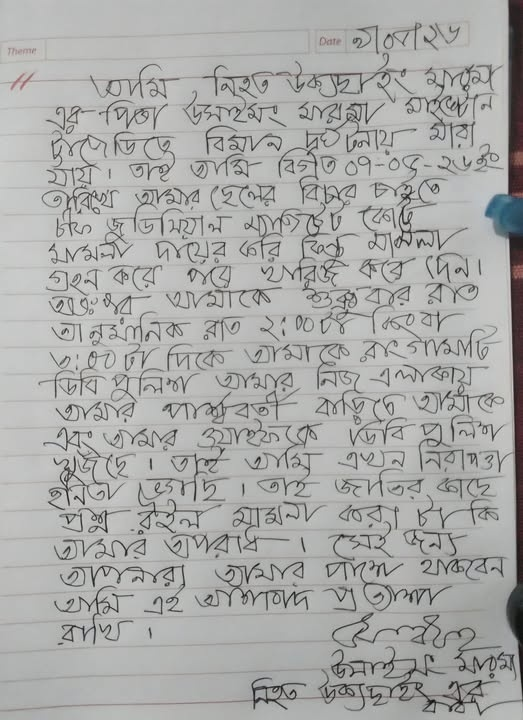 Theme
Date
আমি নিহত উক্যছাইং মারমা
এর পিতা উসাইমং মারমা মাইলস্টোন
ট্রাজেডিতে বিমান দুর্ঘটনায় মারা
যায়। তাই আমি বিগত ০৭-০৫-২৬ইং
তারিখ আমার ছেলের বিচার চাইতে
চীফ জুডিসিয়াল ম্যাজিট্রেট কোর্টে
মামলা দায়ের করি কিন্তু মামলা
গ্রহন করে পরে খারিজ করে দেন।
অতঃপর আমাকে শুক্রবার রাত
আনুমানিক রাত ২:০০টা কিংবা
৩:০০টা দিকে আমাকে রাংগামাটি
ডিবি পুলিশ আমার নিজ এলাকায়
আমার পার্শ্ববর্তী বাড়িতে আমাকে
এবং আমার ওয়াইফকে ডিবি পুলিশ
খুজছে। তাই আমি এখন নিরাপত্তা
হীনতা ভোগছি। তাই জাতির কাছে
প্রশ্ন রইল মামলা করা টা কি
আমার অপরাধ। সেই জন্য
আপনারা আমার পাশে থাকবেন
আমি এই আশাবাদ প্রত্যাশা
রাখি।
উসাইমং মারমা
নিহত উক্যছাইং এর
বাবা